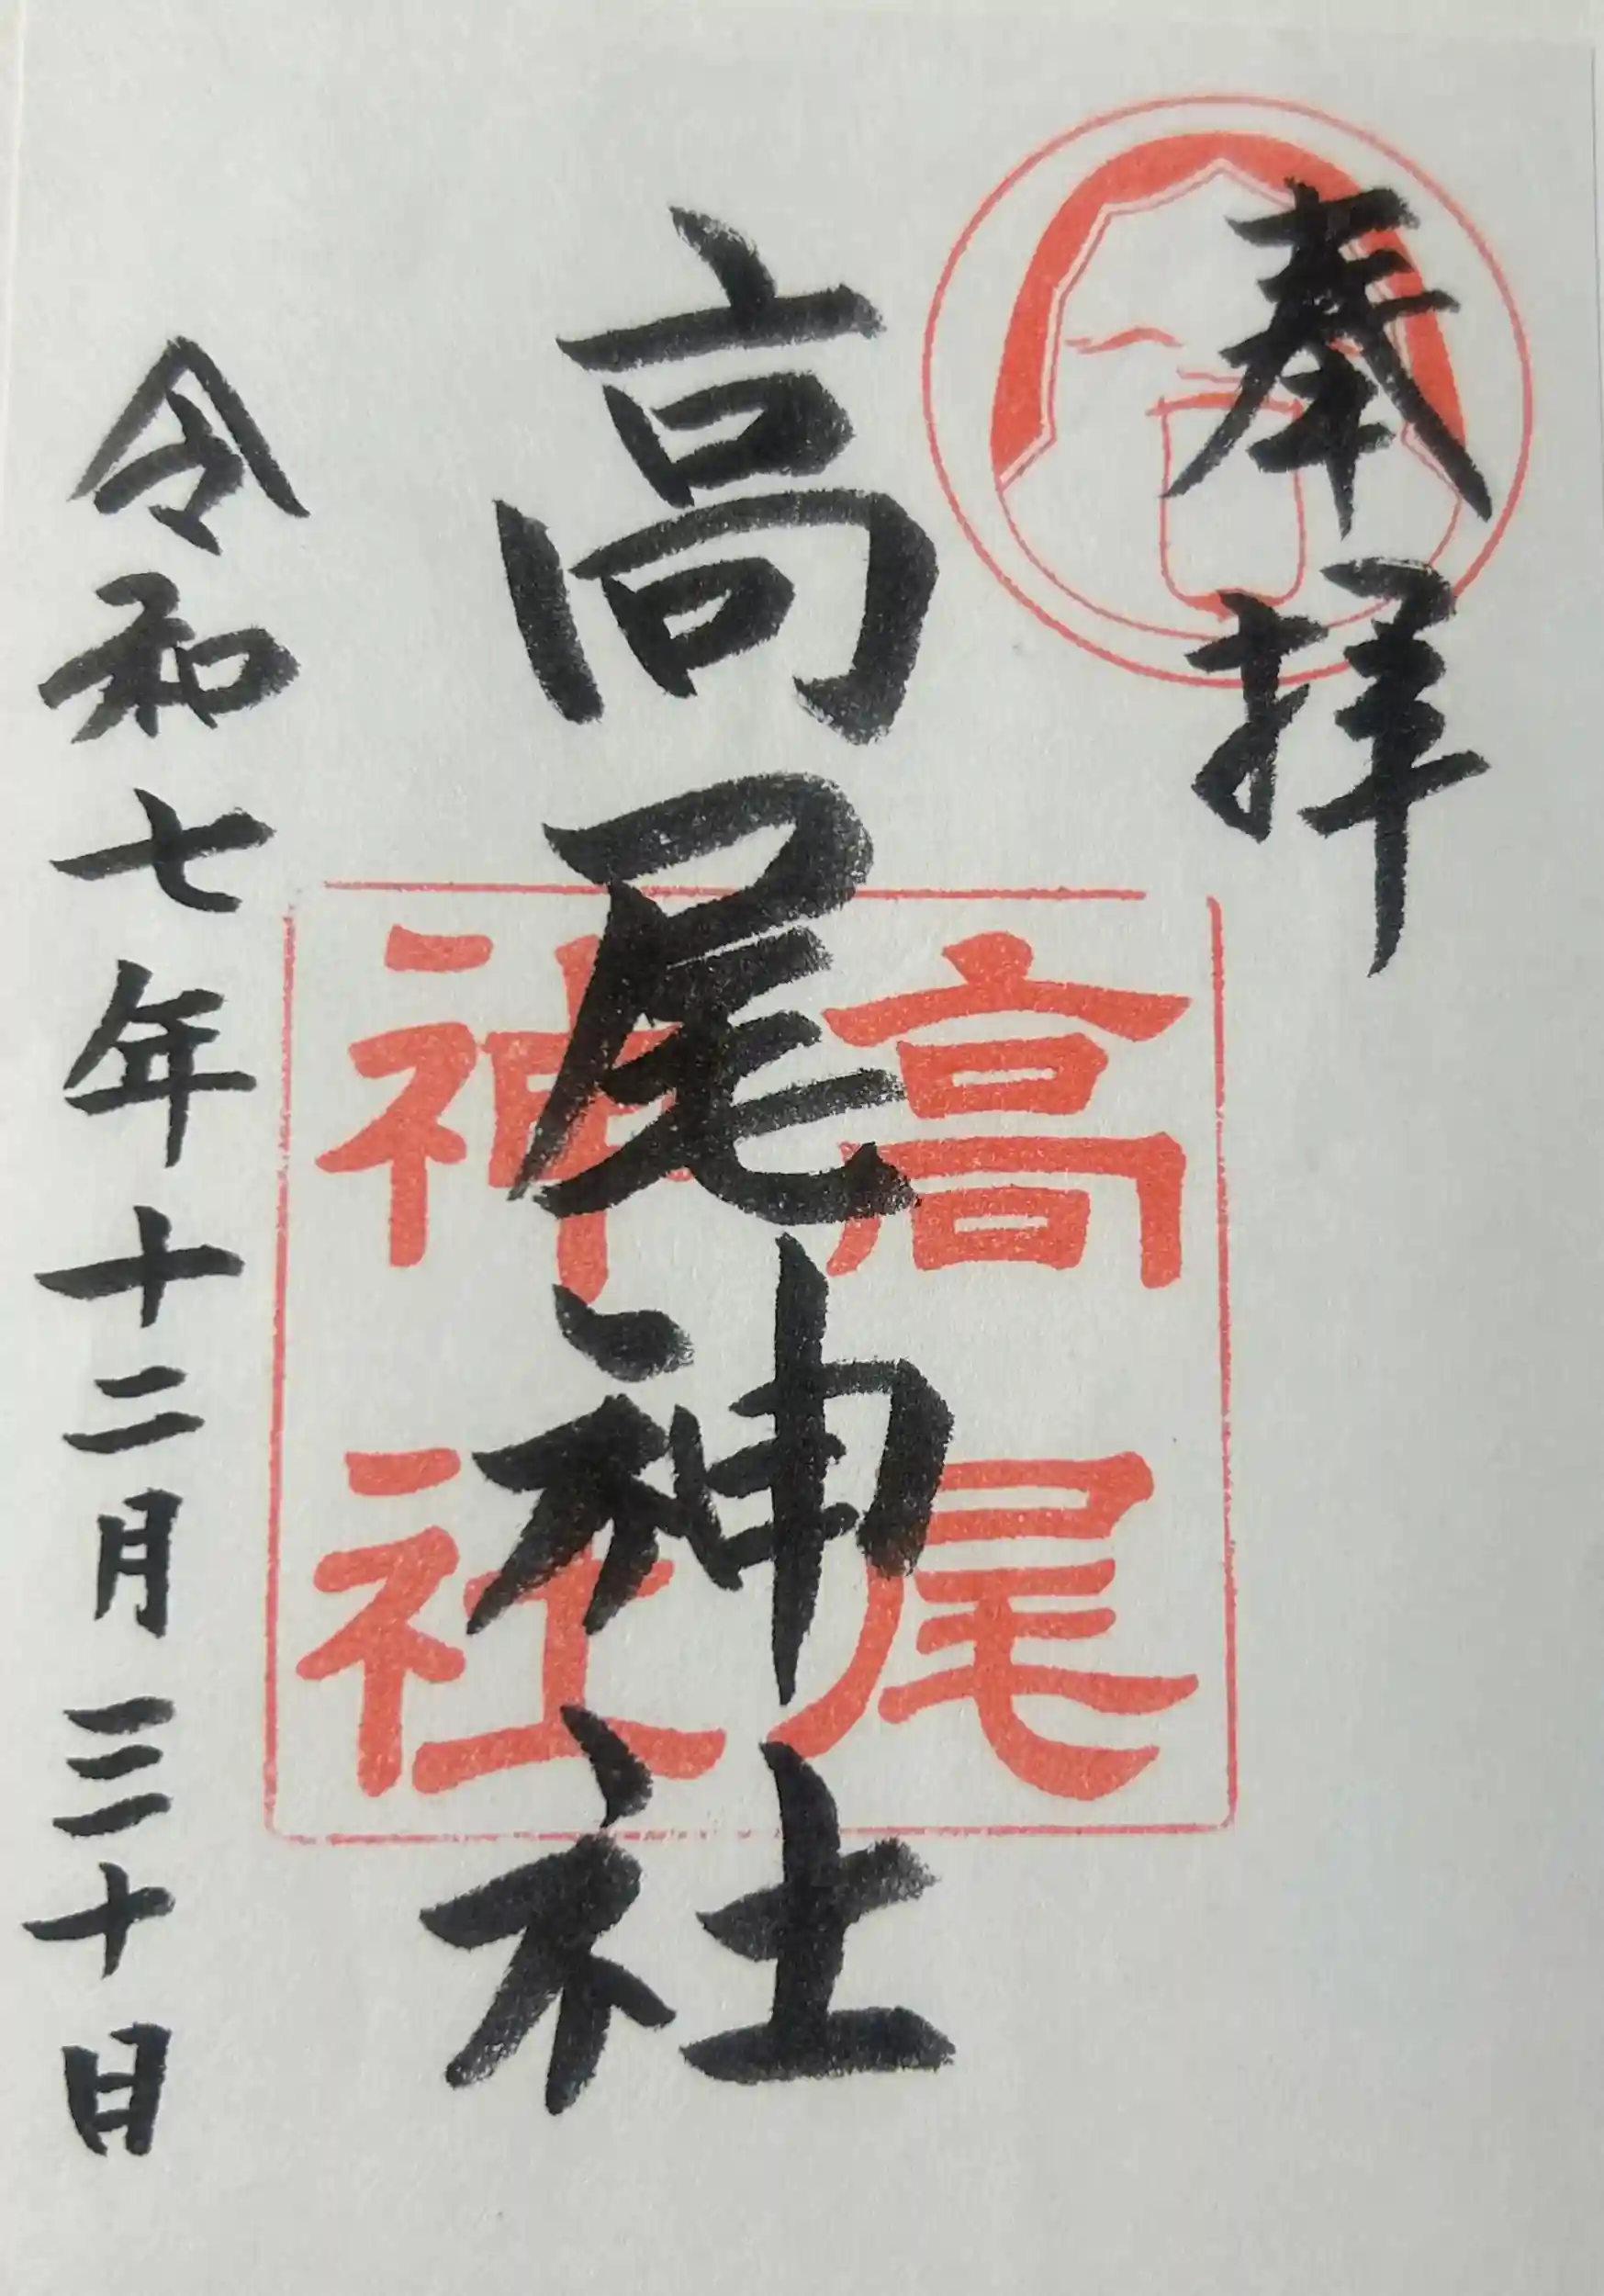 奉拝
高尾神社
高尾
神社
令和七年十二月三十日